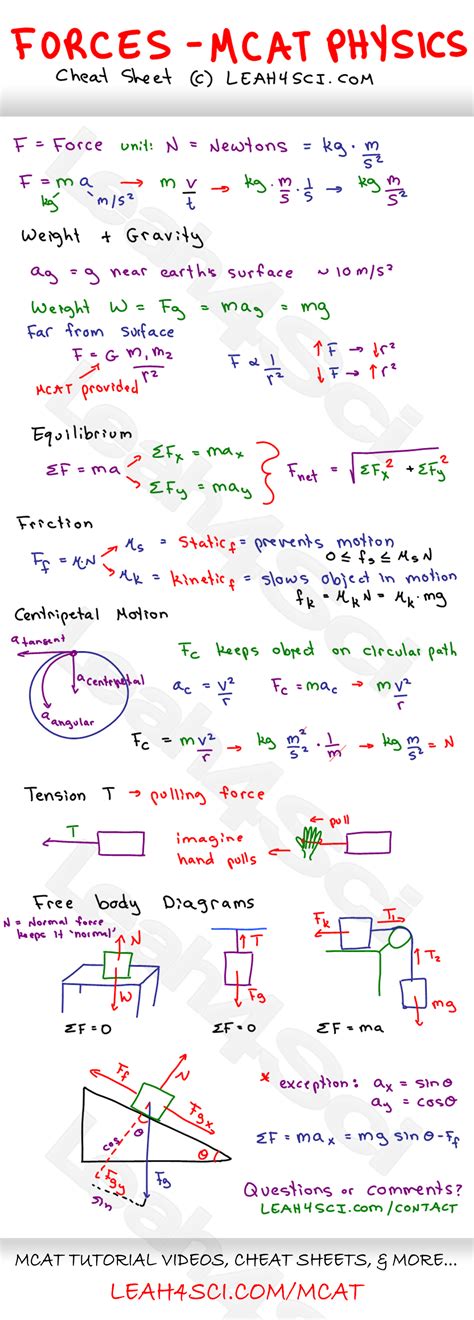 FORCES - MCAT PHYSICS
Cheat Sheet (c) LEAH4SCI.COM
F = Force unit: N = Newtons = kg · m/s²
F = m a → m v/t → kg · m/s · 1/s → kg m/s²
kg m/s²
Weight + Gravity
ag = g near earth's surface ~ 10 m/s²
Weight W = Fg = mag = mg
Far from surface
F = G m₁m₂/r² F α 1/r² ↑F → ↓r²
↓F → ↑r²
MCAT provided
Equilibrium
ΣF = ma ΣFx = max
ΣFy = may
Fnet = √ΣFx² + ΣFy²
Friction
Ff = μ·N μs = Static f = prevents motion
0 ≤ fs ≤ μsN
μk = kinetic f = slows object in motion
fk = μkN = μk·mg
Centripetal Motion
a tangent
a centripetal
a angular
Fc keeps object on circular path
ac = v²/r Fc = mac → m v²/r
Fc = m v²/r → kg m²/s² · 1/m → kg m/s² = N
Tension T → pulling force
T
imagine
hand pulls
pull
Free body Diagrams
N = Normal force
keeps it 'normal'
N
W
ΣF = 0
T
Fg
ΣF = 0
Fk
T₁
T₂
mg
ΣF = ma
Ff
N
Fgx
θ
cos
Fgy
Fg
sin
θ
* exception: ax = sinθ
ay = cosθ
ΣF = max = mg sinθ - Ff
Questions or comments?
LEAH4SCI.com/CONTACT
MCAT TUTORIAL VIDEOS, CHEAT SHEETS, & MORE...
LEAH4SCI.COM/MCAT
Leah4Sci
Leah4Sci
Leah4Sci
Leah4Sci